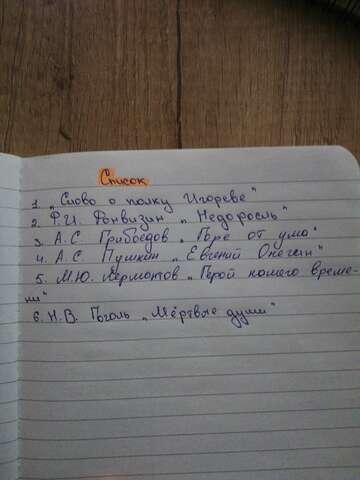 Список
1. „Слово о полку Игореве"
2. Ф.И. Фонвизин „Недоросль"
3. А.С. Грибоедов „Горе от ума"
4. А.С. Пушкин „Евгений Онегин"
5. М.Ю. Лермонтов „Герой нашего време-
ни"
6. Н.В. Гоголь „Мёртвые души"